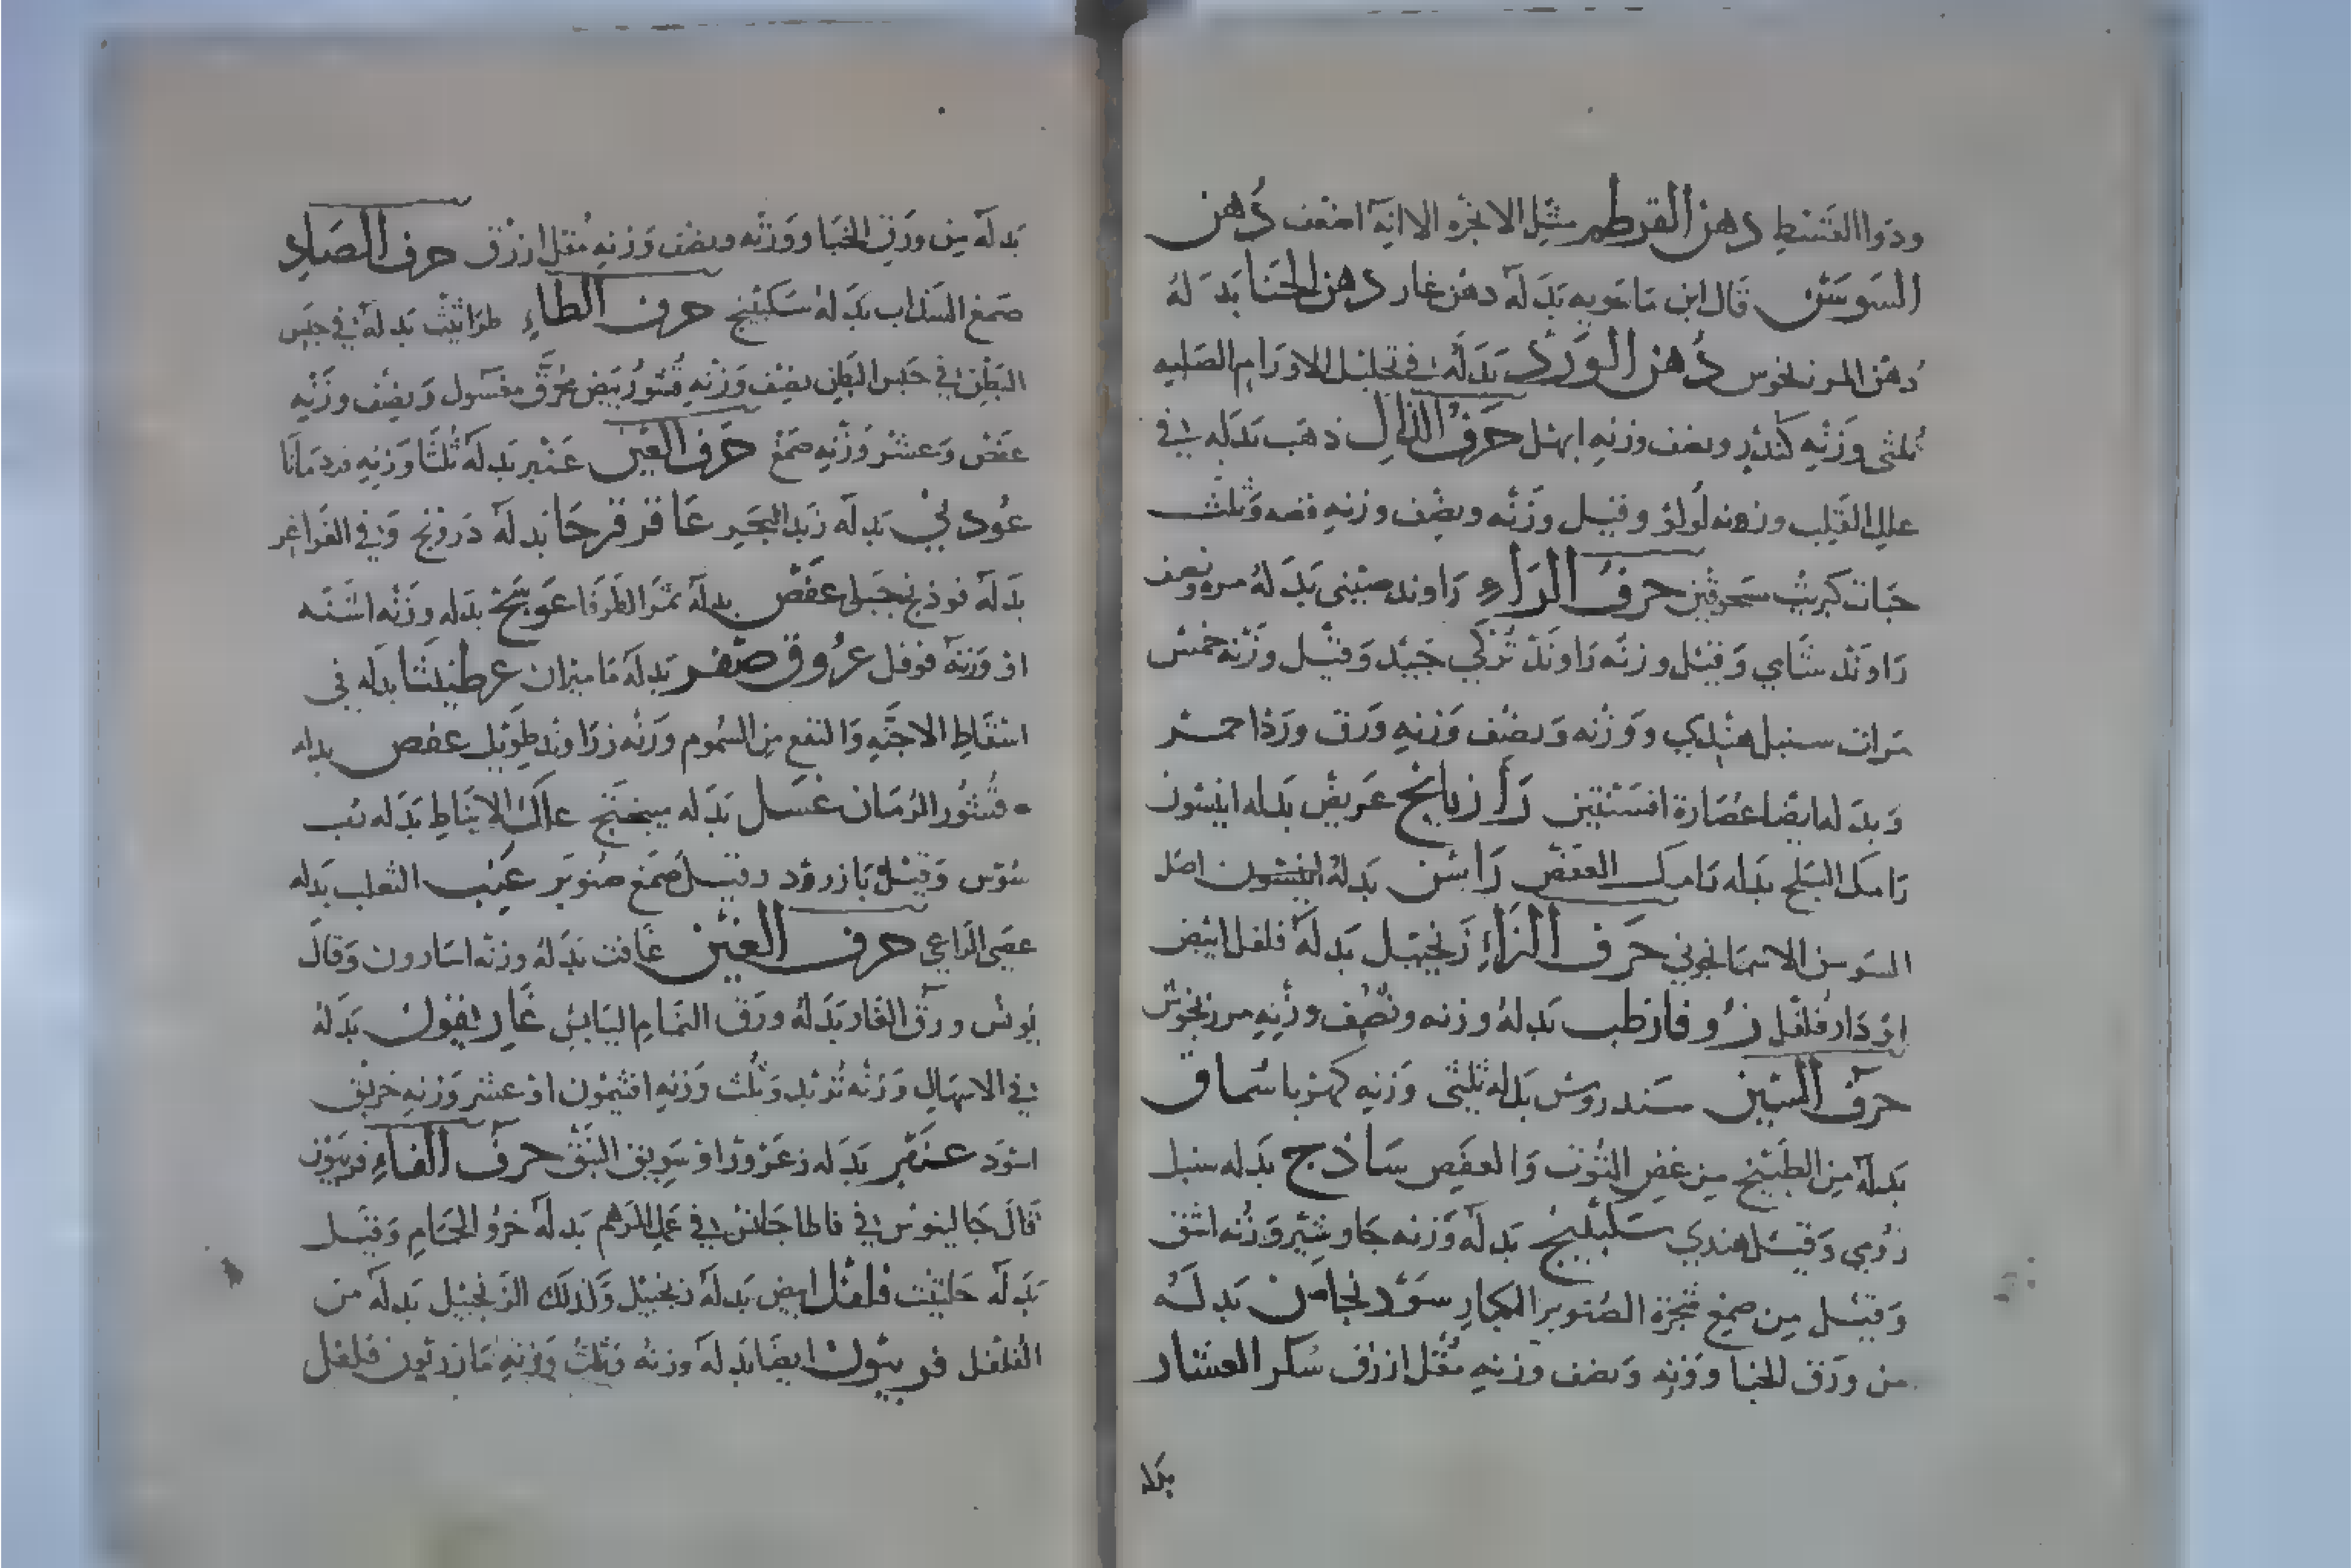 ودوا القسط دهن القرطم مثل الانجره الا انه اضعف دهن
السوسن قال ابن ماسويه بدله دهن غار دهن الحنا بدله
دهن المرزنجوش دهن الورد بدله في تحليل الاورام الصلبه
ثلثى وزنه كندر ونصف وزنه ابهل حرف الذال ذهب بدله في
علل القلب وزنه لولو وقيل وزنه ونصف وزنه فضه وثلث
حبات كبريت حرف الراء راوند صينى بدله مره ونصف
راوند شاي وقيل وزنه راوند تركي جيد وقيل وزنه خمس
مرات سنبل هندي ووزنه ونصف وزنه ورق ورد احمر
وبدله ايضا عصارة افسنتين رازيانج عريض بدله انيسون
رامك البلح بدله رامك العفص راسن بدله اصل
السوسن الاسمانجوني حرف الزاء زنجبيل بدله فلفل ابيض
او دار فلفل زوفا رطب بدله وزنه ونصف وزنه مرزنجوش
حرف السين سندروس بدله ثلثى وزنه كهربا سماق
بدله من الطبيخ من عفص التوت والعفص ساذج بدله سنبل
رومي وقيل هندي سكبينج بدله وزنه جاوشير وزنه اشق
وقيل من صمغ شجرة الصنوبر الكبار سورنجان بدله
من ورق الحنا ووزنه ونصف وزنه مقل ازرق سكر العشار
بدله
بدله من ورق الحنا ووزنه ونصف وزنه مقل ازرق حرف الصاد
صمغ السذاب بدله سكبينج حرف الطاء طراثيث بدله في حبس
البطن في حبس البطن نصف وزنه قشور بيض محرق مغسول ونصف وزنه
عفص وعشر وزنه صمغ حرف العين عنبر بدله ثلثا وزنه قردمانا
عود بدله زبد البحر عاقرقرحا بدله درونج وفي الغراغر
بدله فوذنج جبلى عفص بدله ثمر الطرفا عوسج بدله وزنه اشنه
او وزنه فوفل عروق صفر بدله ماميران عرطنيثا بدله في
اسقاط الاجنه والنفع من السموم وزنه زراوند طويل عفص بدله
قشور الرمان عسل بدله ميبختج علك الانباط بدله
سوس وقيل بازرود وقيل صمغ صنوبر عنب الثعلب بدله
عصى الراعي حرف الغين غافت بدله وزنه اسارون وقال
بولس ورق الغار بدله ورق النمام اليابس غاريقون بدله
في الاسهال وزنه تربد وثلث وزنه افثيمون او عشر وزنه خربق
اسود بدله زعرور او سويق النبق حرف الفاء فربيون
قال جالينوس في قاطاجانس في عمل المرهم بدله خرؤ الحمام وقيل
بدله حلتيت فلفل ابيض بدله زنجبيل وكذلك الزنجبيل بدله من
الفلفل فربيون ايضا بدله وزنه وثلث وزنه مازريون فلفل